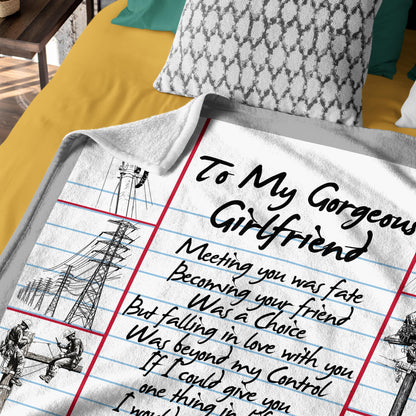 To My Gorgeous
Girlfriend
Meeting you was fate
Becoming your friend
Was a Choice
But falling in love with you
Was beyond my Control
If I could give you
one thing in
I would